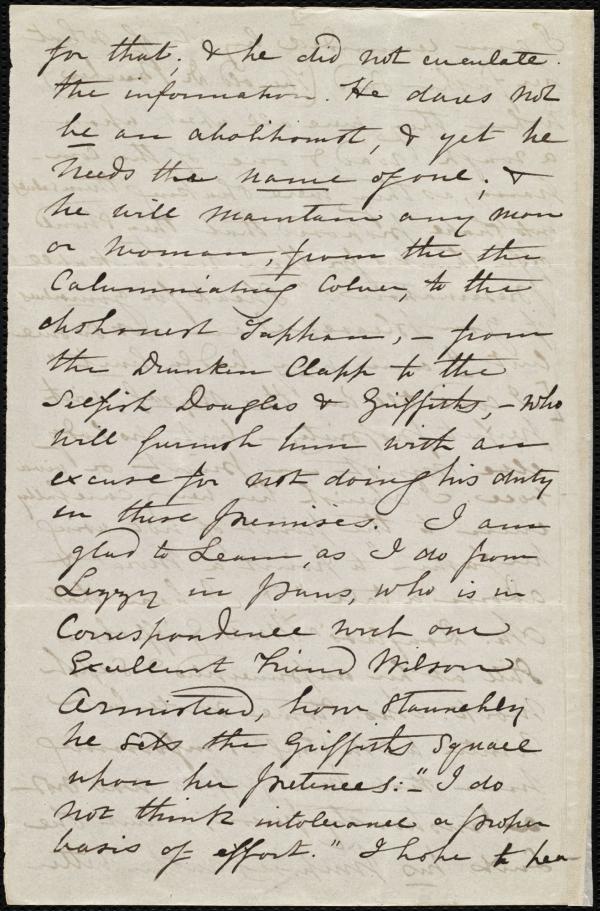 for that; & he did not circulate
the information. He dares not
be an abolitionist, & yet he
needs the name of one; &
he will maintain any man
or woman, from the the
Calumniating Colver, to the
dishonest Tappan, - from
the Drunken Clapp to the
Selfish Douglas & Griffiths, - who
will furnish him with an
excuse for not doing his duty
in these premises. I am
glad to learn, as I do from
Lizzy in Paris, who is in
Correspondence with our
Excellent Friend Wilson
Armistead, how staunchly
he sets the Griffiths Squall
upon her pretences: - "I do
not think intolerance a proper
basis of effort." I hope to hear